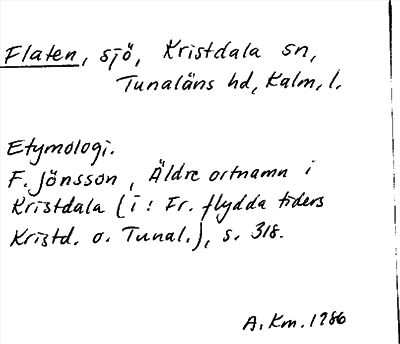 Flaten, sjö, Kristdala sn,
Tunaläns hd, Kalm. l.
Etymologi.
F. Jönsson, Äldre ortnamn i
Kristdala (i: Fr. flydda tiders
Kristd. o. Tunal.), s. 318.
A. Km. 1986